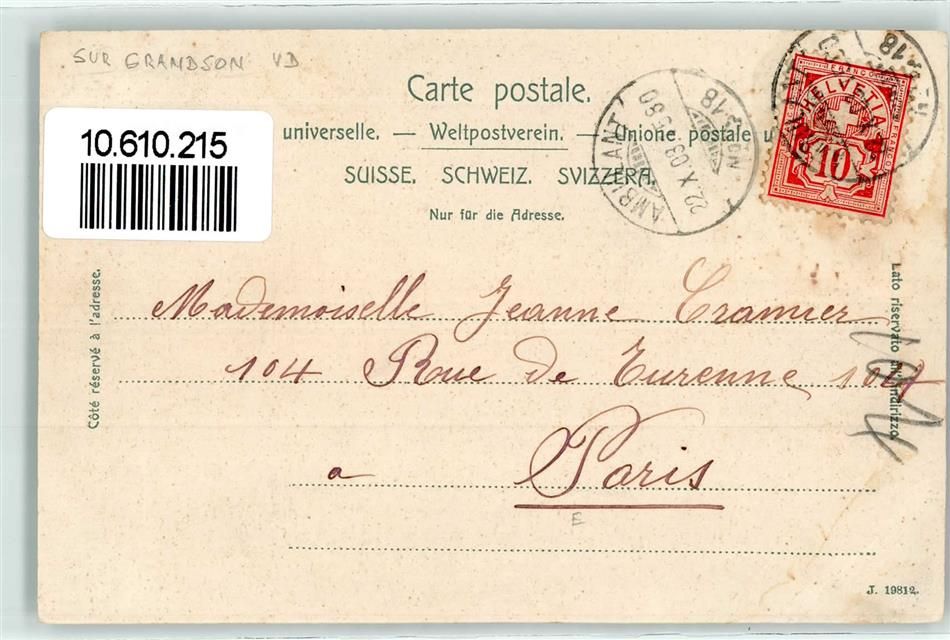 SUR GRANDSON VD
10.610.215
Carte postale.
universelle. — Weltpostverein. — Unione postale u
SUISSE. SCHWEIZ. SVIZZERA.
Nur für die Adresse.
AMBULANT
22.X.03
HELVETIA
FRANCO
10
Côté réservé à l'adresse.
Lato riservato all'indirizzo
Mademoiselle Jeanne Cramier
104 Rue de Turenne 104
a Paris
E
J. 19812.